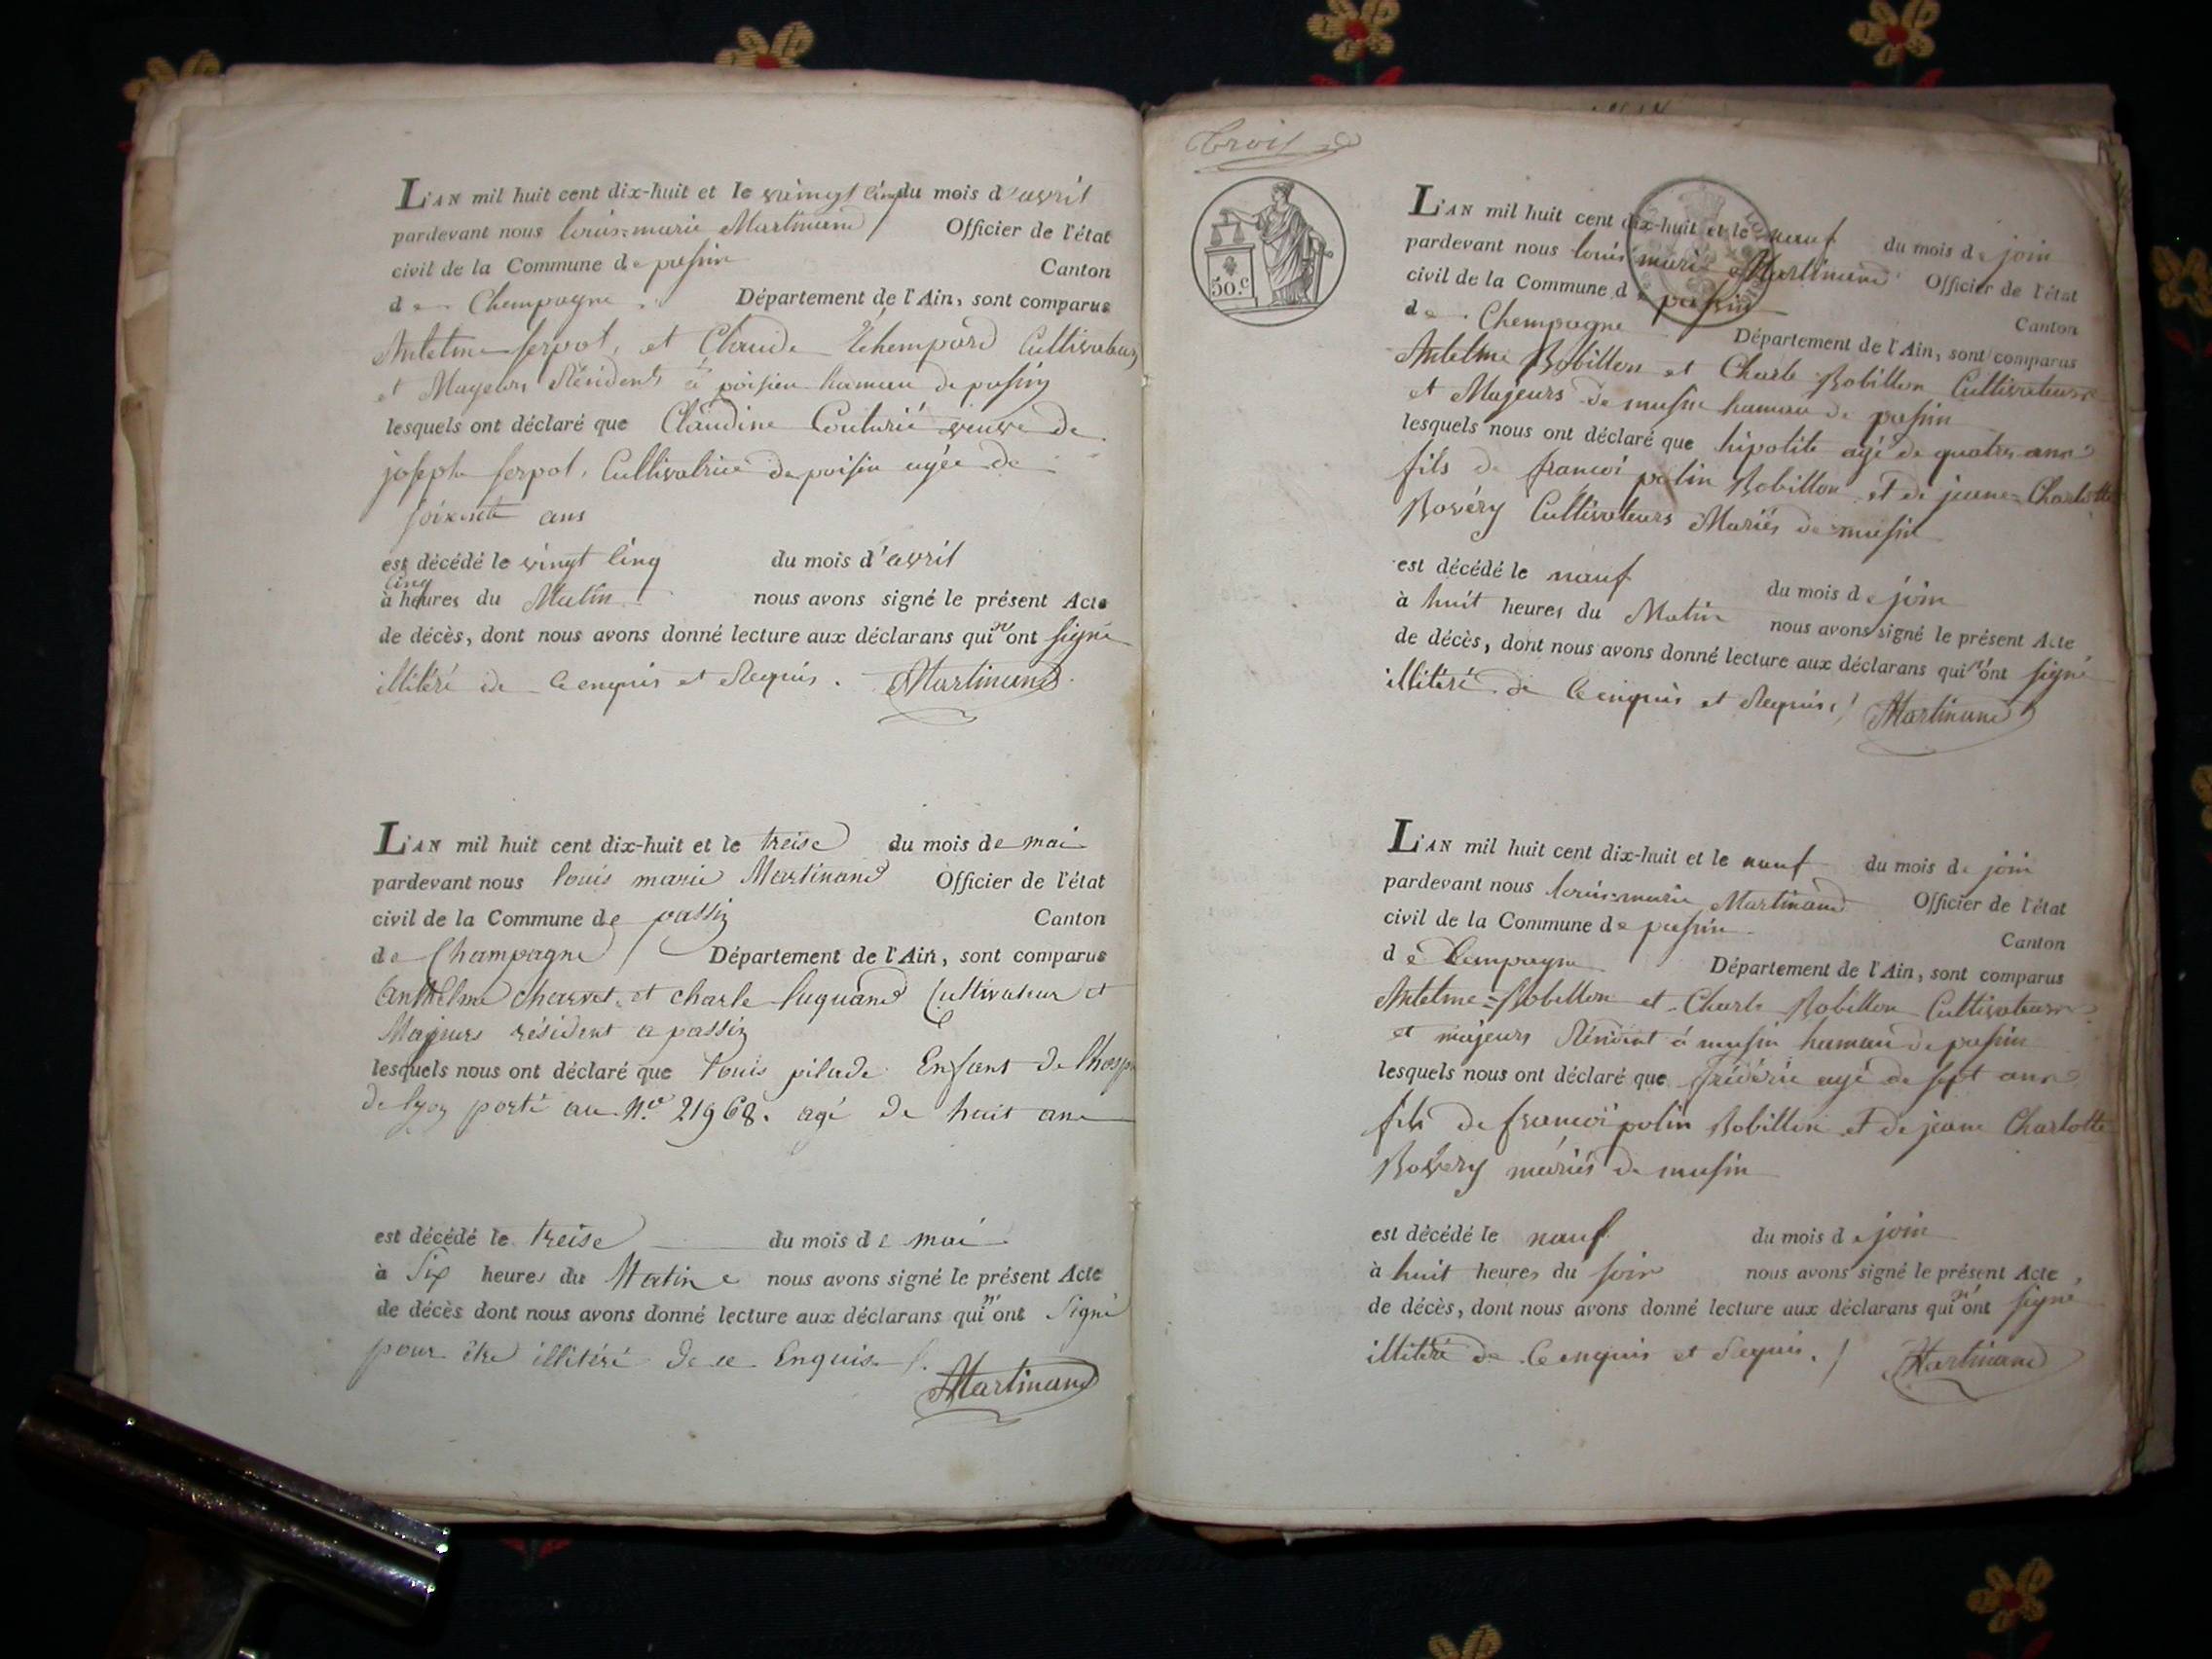 L'AN mil huit cent dix-huit et le vaingt cinq du mois d'avril
pardevant nous louis=marie Martinand Officier de l'état
civil de la Commune de passin
Canton
de Chempagne Département de l'Ain, sont comparus
Antelme serpol, et Claude Cultivateurs
et Mageurs Résidents à poisieu hamau de passin
lesquels ont déclaré que Claudine Couturié veuve de
joseph serpol, Cultivatrice de poisieu agée de
soixente ans
est décédé le vingt cinq du mois d'avril
cinq
à heures du Matin nous avons signé le présent Acte
de décès, dont nous avons donné lecture aux déclarans qui n'ont signé
illitéré de Ce enquis et Requis. Martinand
L'AN mil huit cent dix-huit et le treise du mois de mai
pardevant nous louis marie Martinand Officier de l'état
civil de la Commune de passin
Canton
de Champagne Département de l'Ain, sont comparus
Anthelme charvet et charle luquand Cultivateur et
Majeurs résident a passin
lesquels nous ont déclaré que louis pilade Enfant de
de lyon porté au N.o 21968. agé de huit ans
est décédé le treise du mois de mai
à Six heures du Matin nous avons signé le présent Acte
de décès dont nous avons donné lecture aux déclarans qui n'ont Signé
pour être illitéré de ce Enquis. Martinand
trois
50.c
L'AN mil huit cent dix-huit et le nauf du mois de join
pardevant nous louis marie Martinand Officier de l'état
civil de la Commune de passin
Canton
de Chempagne Département de l'Ain, sont comparus
Antelme Robillon et Charle Robillon Cultivateurs
et Majeurs de musin hamau de passin
lesquels nous ont déclaré que hipolite agé de quatre ans
fils de francoi polin Robillon et de jeane=Charlotte
Bovéry Cultivateurs Mariés de musin
est décédé le nauf du mois de join
à huit heures du Matin nous avons signé le présent Acte
de décès, dont nous avons donné lecture aux déclarans qui n'ont signé
illitéré de Ce enquis et Requis. Martinand
L'AN mil huit cent dix-huit et le nauf du mois de join
pardevant nous louis=marie Martinand Officier de l'état
civil de la Commune de passin
Canton
de Cempagne Département de l'Ain, sont comparus
Antelme=Robillon et Charle Robillon Cultivateurs
et majeurs Résident à musin hamau de passin
lesquels nous ont déclaré que frédéric agé de sept ans
fils de francoi polin Robillon et de jeane Charlotte
Bovéry mariés de musin
est décédé le nauf du mois de join
à huit heures du soir nous avons signé le présent Acte
de décès, dont nous avons donné lecture aux déclarans qui n'ont signé
illitéré de Ce enquis et Requis. Martinand